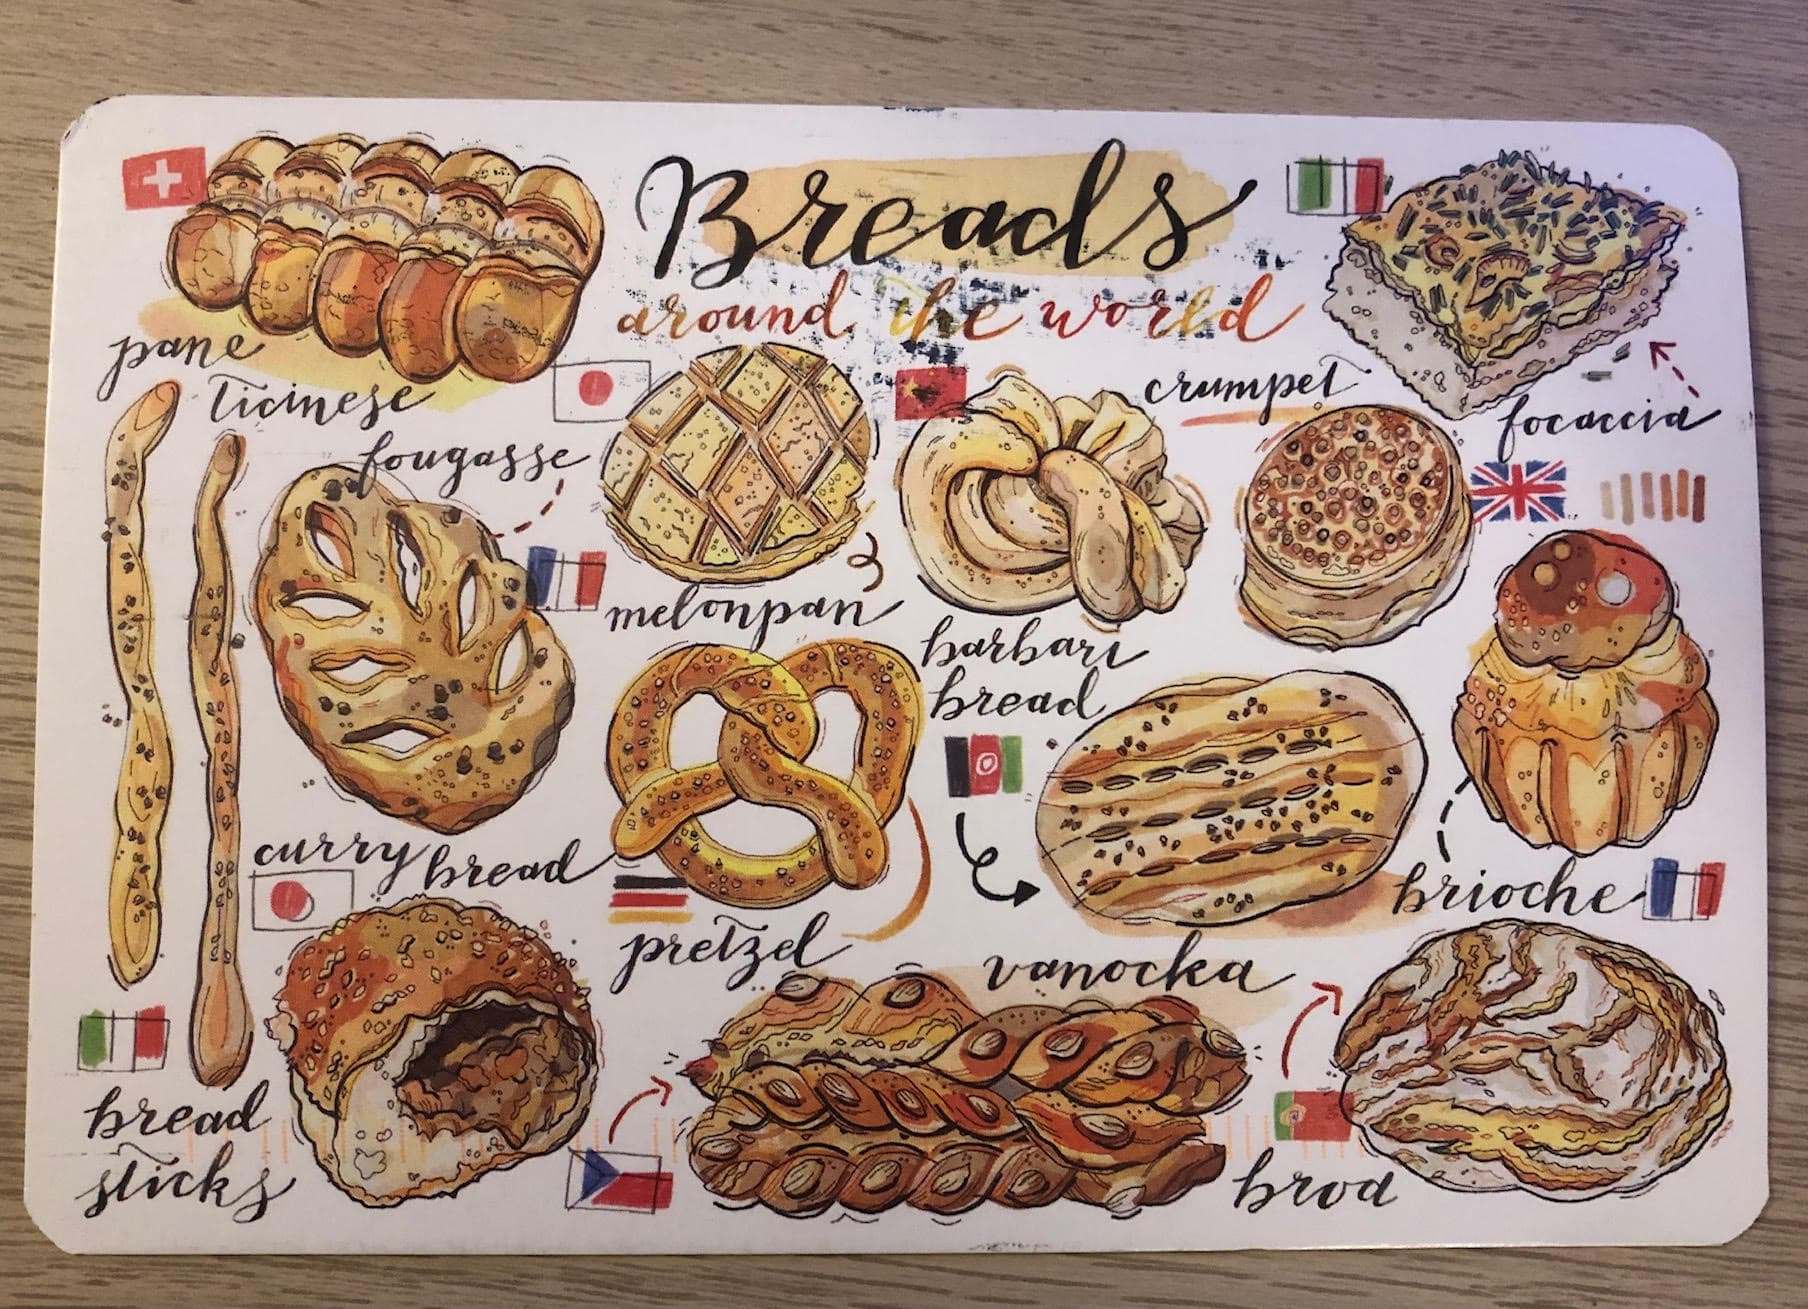 Breads
around the world
pane
ticinese
crumpet
focaccia
fougasse
melonpan
barbari
bread
curry bread
pretzel
brioche
vanocka
bread
sticks
broa